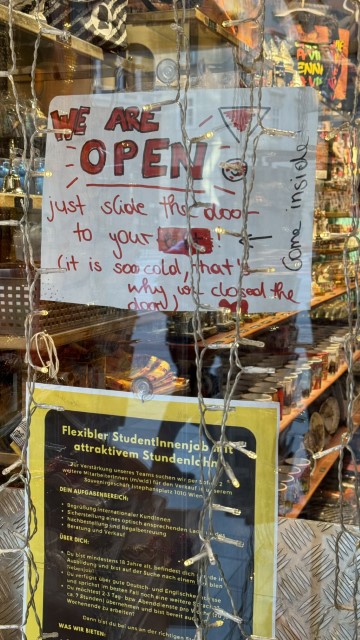 WE ARE
OPEN
just slide the door
to your
(it is soo cold, that's
why we closed the
door)
Come inside!
Flexibler StudentInnenjob mit
attraktivem Stundenlohn
Zur Verstärkung unseres Teams suchen wir per sofort 2
weitere MitarbeiterInnen (m/w/d) für den Verkauf in unserem
Souvenirgeschäft Stephansplatz 1010 Wien
DEIN AUFGABENBEREICH:
Begrüßung internationaler KundInnen
Sicherstellung eines optisch ansprechenden
Nachbestellung und Regalbetreuung
Beratung und Verkauf
ÜBER DICH:
Du bist mindestens 18 Jahre alt, befindest dich in
Ausbildung und bist auf der Suche nach einem
Du verfügst über gute Deutsch- und Englischkenntnisse
und sprichst im besten Fall noch eine weitere Sprache
Du möchtest 2-3 Tag- bzw. Abenddienste pro
ca. 7 Stunden) übernehmen und bist bereit auch
Wochenende zu arbeiten
Dann bist du bei uns in der richtigen
WAS WIR BIETEN: